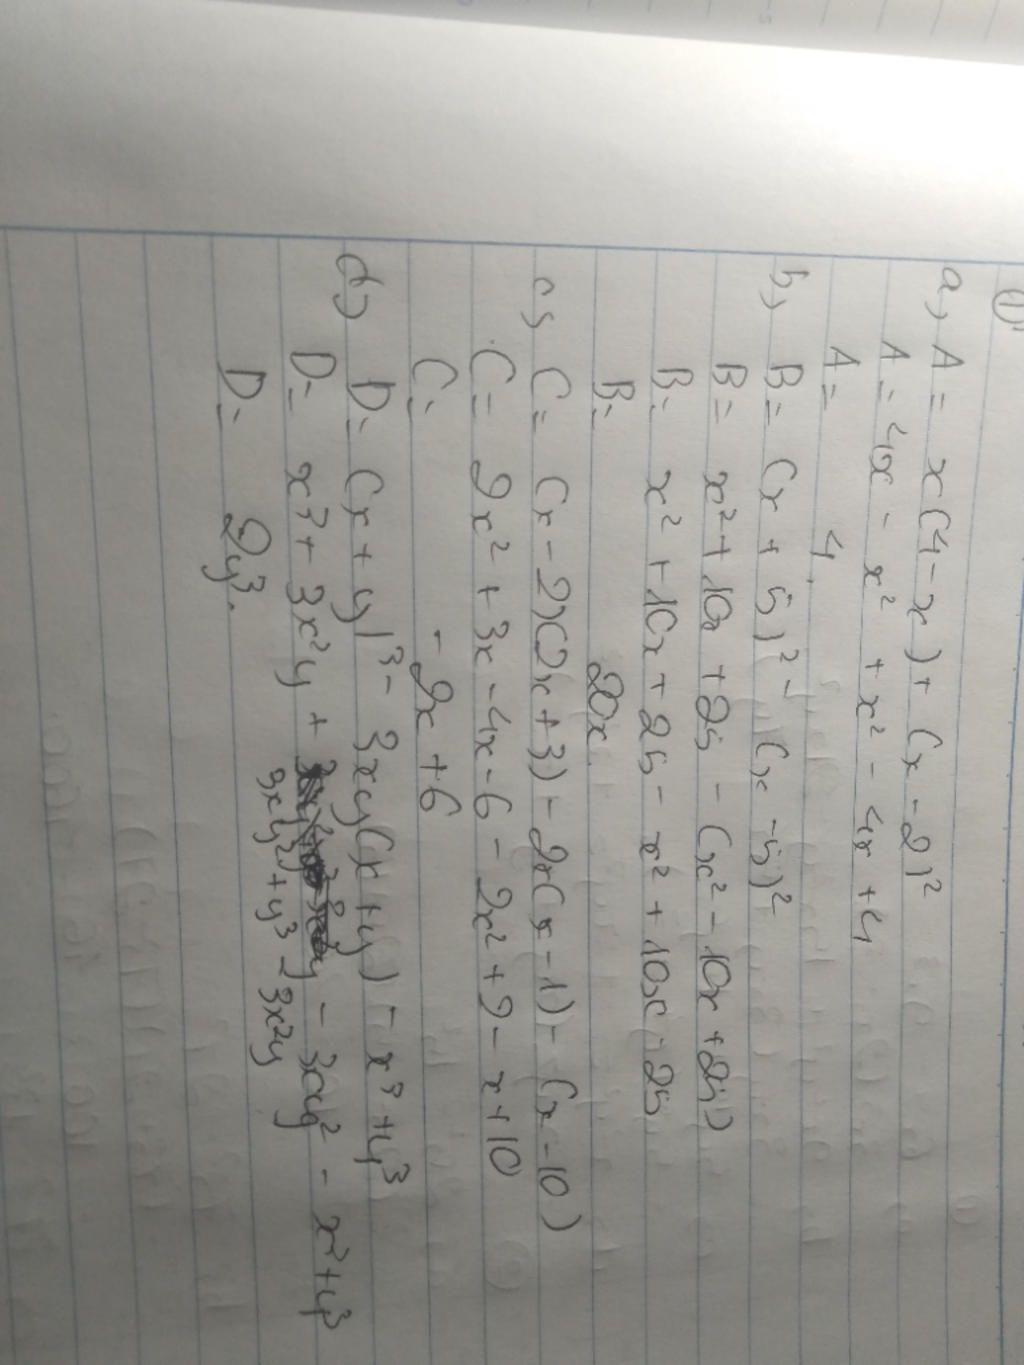 ①
a, A = x(4-x)+(x-2)²
A = 4x - x² + x² - 4x + 4
A = 4.
b, B = (x + 5)² - (x - 5)²
B = x² + 10x + 25 - (x² - 10x + 25)
B = x² + 10x + 25 - x² + 10x - 25
B = 20x.
c, C = (x - 2)(2x + 3) - 2x(x - 1) - (x - 10)
C = 2x² + 3x - 4x - 6 - 2x² + 2 - x + 10
C = - 2x + 6
d, D = (x + y)³ - 3xy(x + y) - x³ + y³
D = x³ + 3x²y + - 3xy² - x³ + y³
3xy² + y³ - 3x²y
D = 2y³.